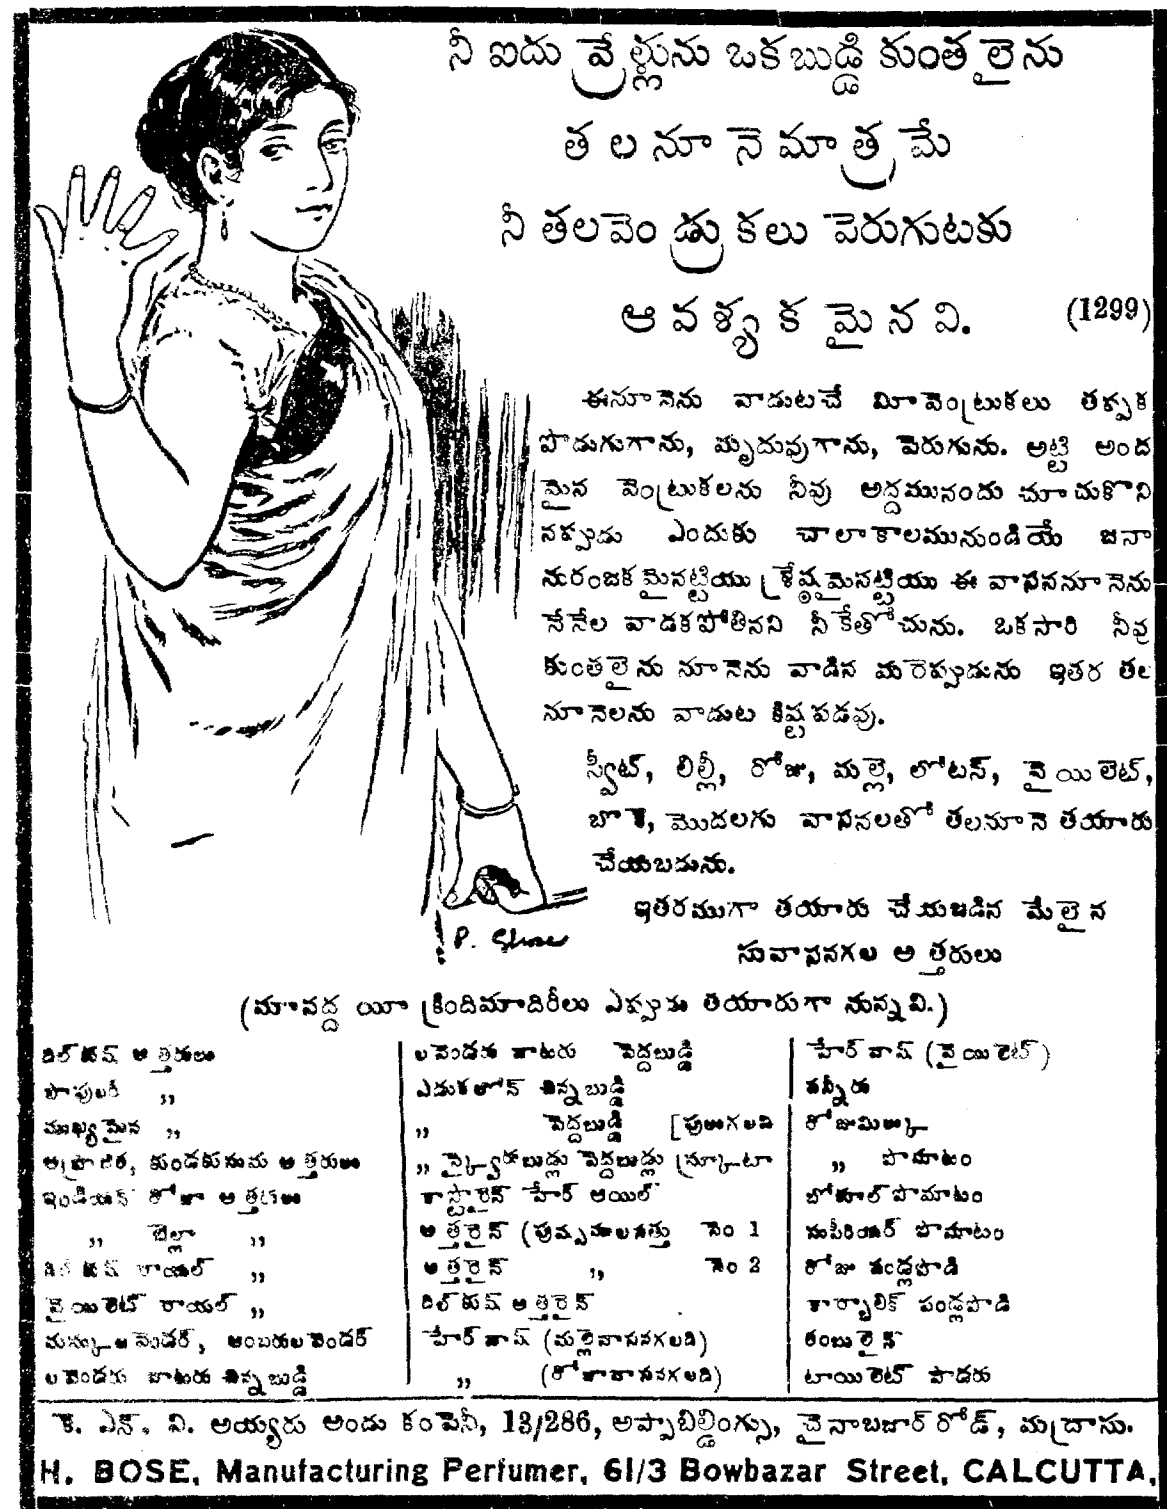 నీ ఐదు వ్రేళ్లును ఒకబుడ్డి కుంతలైను
తలనూనెమాత్రమే
నీ తలవెండ్రుకలు పెరుగుటకు
ఆవళ్యకమైనవి. (1299)
ఈనూనెను వాడుటచే మీవెంట్రుకలు తప్పక
పొడుగుగాను, మృదువుగాను, పెరుగును. అట్టి అంద
మైన వెంట్రుకలను నీవు అద్దమునందు చూచుకొని
నప్పుడు ఎందుకు చాలాకాలమునుండియే జనా
నురంజకమైనట్టియు శ్రేష్ఠమైనట్టియు ఈ వాసననూనెను
నేనేల వాడకపోతినని నీకేతోచును. ఒకసారి నీవు
కుంతలైను నూనెను వాడిన మరెప్పుడును ఇతర తల
నూనెలను వాడుట కిష్టపడవు.
స్వీట్, లిల్లీ, రోజు, మల్లె, లోటస్, వైయిలెట్,
బొకె, మొదలగు వాసనలతో తలనూనె తయారు
చేయబడును.
ఇతరముగా తయారు చేయబడిన మేలైన
సువాసనగల అత్తరులు
P. Ghose
(మావద్ద యీ క్రిందిమాదిరీలు ఎప్పుడు తయారుగా నున్నవి.)
దిల్ కుష్ అత్తరులు
పాపులర్ ,,
ముఖ్యమైన ,,
అత్తరులు
ఇండియన్ రోజా అత్తరులు
,, బెల్లా ,,
దిల్ కుష్ రాయల్ ,,
వైయిలెట్ రాయల్ ,,
మస్కు లవెండర్, అంబరులవెండర్
లవెండరు వాటరు చిన్నబుడ్డి
లవెండరు వాటరు పెద్దబుడ్డి
ఎడుకలోన్ చిన్నబుడ్డి
,, పెద్దబుడ్డి
,, పెద్దబుడ్లు
కాస్టారైన్ హేర్ ఆయిల్
అత్తరైన్ నెం 1
అత్తరైన్ ,, నెం 2
దిల్ కుష్ అత్తరైన్
హేర్ వాష్ (మల్లెవాసనగలది)
,, (రోజావాసనగలది)
హేర్ వాష్ (వైయిలెట్)
పన్నీరు
రోజుమిల్కు
,, పొమాటం
బోకూల్ పొమాటం
సుపీరియర్ పొమాటం
రోజు పండ్లపొడి
కార్బాలిక్ పండ్లపొడి
తంబులైన్
టాయిలెట్ పౌడరు
కె. ఎన్. వి. అయ్యరు అండు కంపెనీ, 13/286, అప్పాబిల్డింగ్సు, చైనాబజార్ రోడ్, మద్రాసు.
H. BOSE, Manufacturing Perfumer, 61/3 Bowbazar Street, CALCUTTA,